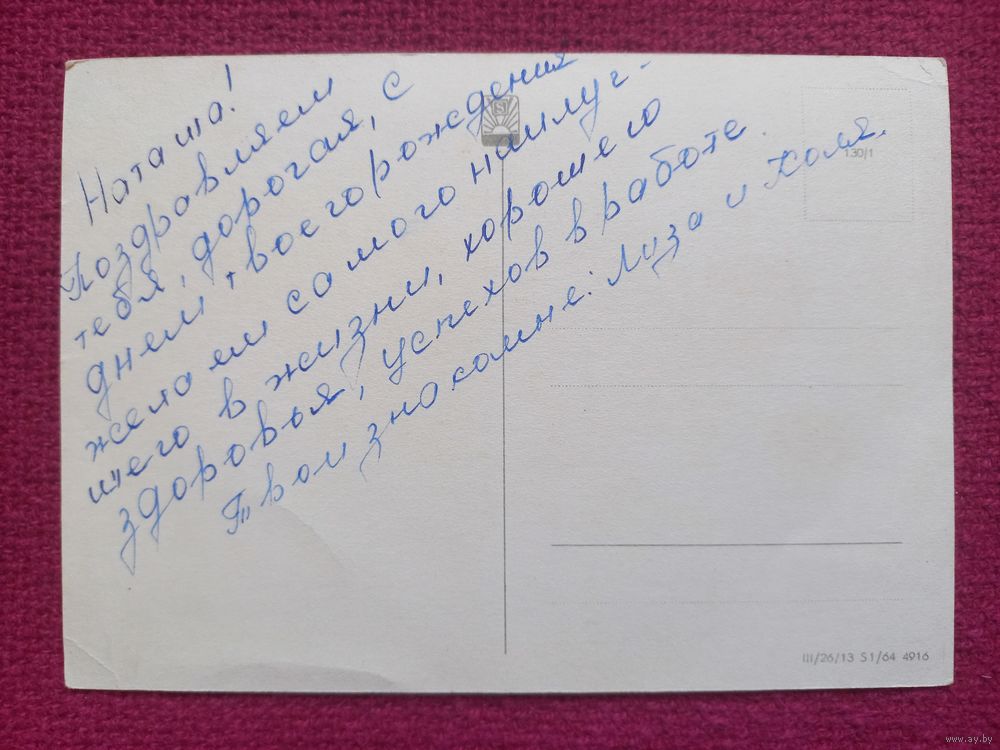 Наташа!
Поздравляем
тебя, дорогая, с
днем твоего рождения
желаем самого наилуч-
шего в жизни, хорошего
здоровья, успехов в работе.
Твои знакомые: Луза и Коля.
130/1
III/26/13 S1/64 4916
www.ay.by